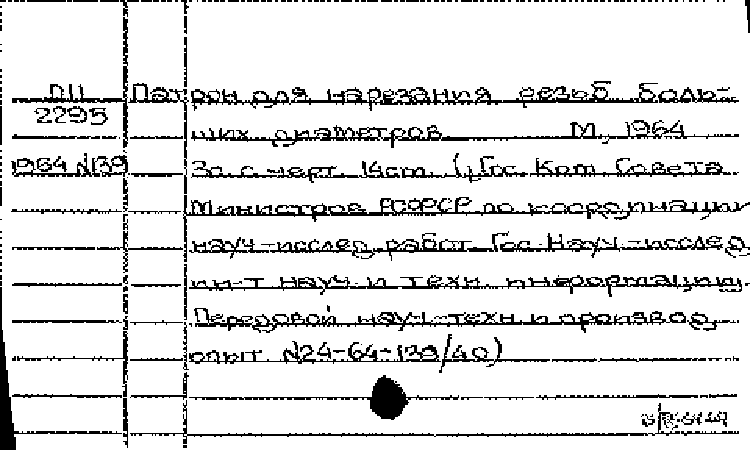 ПП Патрон для нарезания резьб боль-
2295
ших диаметров М., 1964
1964 N139 3с. с черт. 14см. (Гос. Ком. Совета
Министров РСФСР по координации
науч-исслед. работ. Гос. Науч.-исслед.
ин-т науч. и техн. информации.
Передовой науч-техн и производ.
опыт. N24-64-139/40)